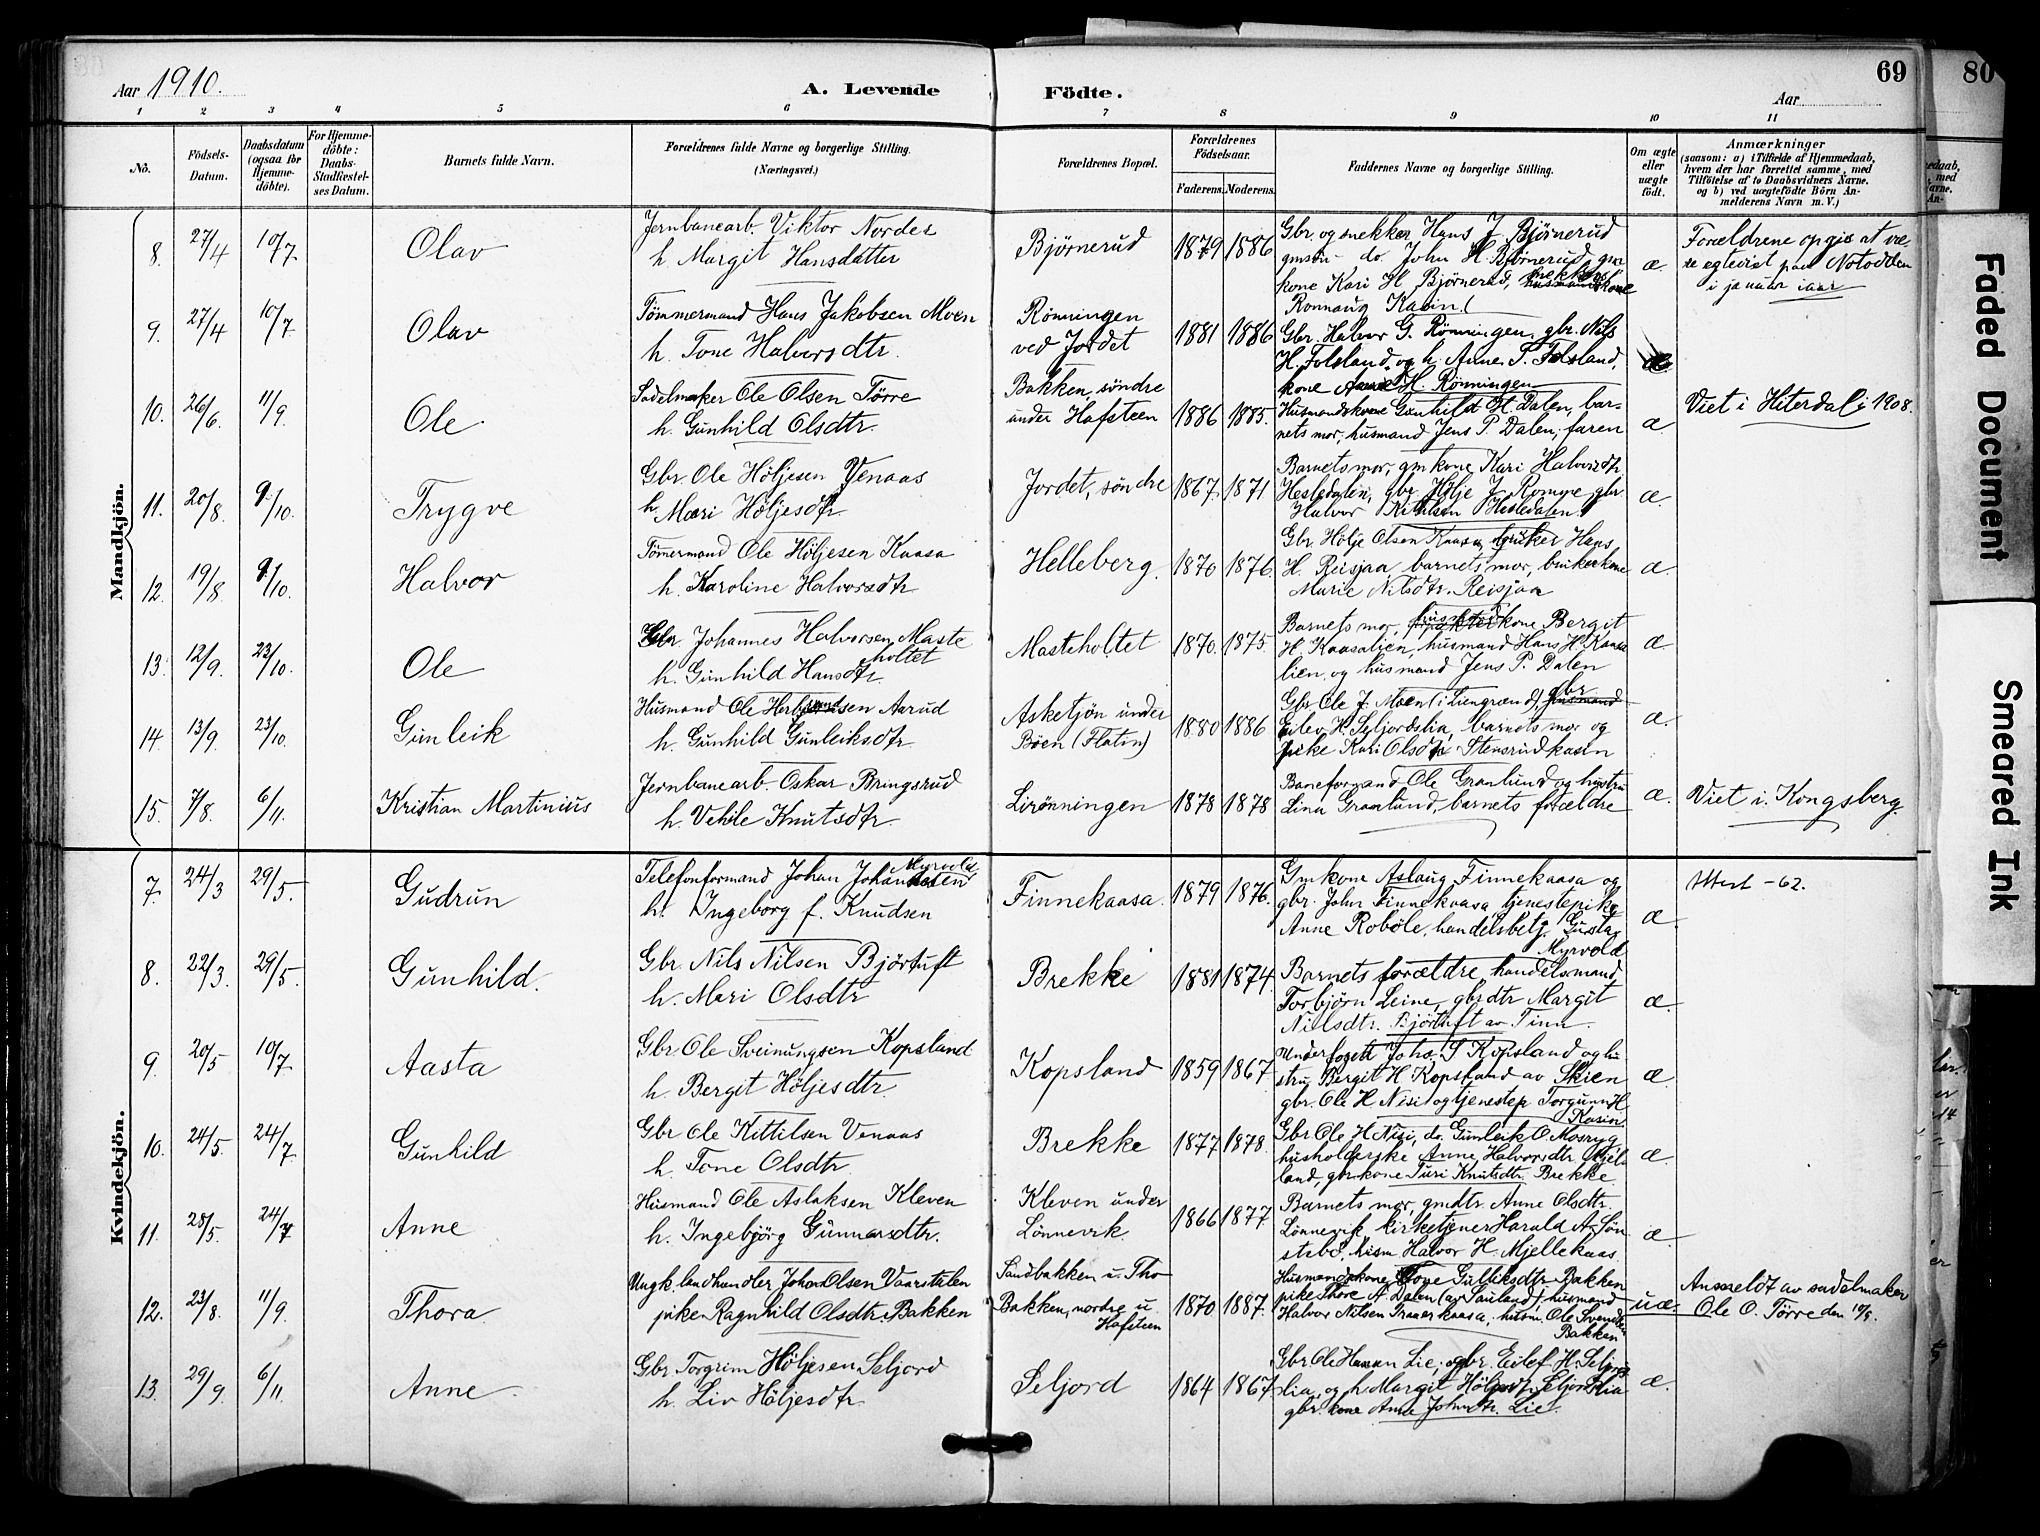 Aar 1910.
A. Levende
Födte.
69
80
Aar
1 2 3 4 5 6 7 8 9 10 11
No.
Födsels-Datum.
Daabsdatum (ogsaa for Hjemme-döbte).
For Hjemme-döbte: Daabs-Stadfæstel-ses Datum.
Barnets fulde Navn.
Forældrenes fulde Navne og borgerlige Stilling.
(Næringsvei.)
Forældrenes Bopæl.
Forældrenes Födselsaar.
Faderens. Moderens.
Faddernes Navne og borgerlige Stilling.
Om ægte eller uægte födt.
Anmærkninger
(saasom: a) i Tilfælde af Hjemmedaab,
hvem der har forrettet samme, med
Tilföielse af to Daabsvidners Navne.
og b) ved uægtefödte Börn An-
melderens Navn m. V.)
Mandkjön.
8. 27/4 10/7 Olav
Jernbanearb. Viktor Norder
h. Margit Hansdatter
Bjørnerud 1879 1886
Gbr. og snekker Hans J. Bjørnerud
gmsøn - do. John H. Bjørnerud, gm
kone Kari H. Bjørnerud, snekkerkone
Ronnaug Kasin
æ.
Forældrene opgis at væ-
re egteviet paa Notodden
i januar iaar
9. 27/4 10/7 Olav
Tömmermand Hans Jakobsen Moen
h. Tone Halvorsdtr.
Rönningen
ved Jordet
1881 1886
Gbr. Halvor G. Rönningen, gbr. Nils
H. Folsland og h. Anne P. Folsland,
kone Anne H. Rönningen
æ
10. 26/6. 11/9. Ole
Sadelmaker Ole Olsen Törre
h. Gunhild Olsdtr.
Bakken, söndre
under Hafsteen
1886 1885.
Husmandskone Gunhild H. Dalen, bar-
nets mor, husmand Jens P. Dalen, faren
æ.
Viet i Hiterdal i 1908.
11. 20/8. 9/10. Trygve
Gbr Ole Höljesen Venaas
h. Mari Höljesdtr
Jordet, söndre 1867 1871
Barnets mor, gm kone Kari Halvorsdtr
Hesledalen, gbr Hölje J. Romme, gbr.
Halvor Kittilsen Hesledalen.
æ.
12. 19/8. 9/10. Halvor
Tömermand Ole Höljesen Kaasa
h. Karoline Halvorsdtr
Helleberg. 1870 1876.
Gbr. Hölje Olsen Kaasa, bruker Hans
H. Reisjaa barnets mor, brukerkone
Marie Nilsdtr. Reisjaa
æ.
13. 12/9. 23/10. Ole
Gbr Johannes Halvorsen Maste
holtet
h. Gunhild Hansdtr.
Masteholtet 1870. 1875.
Barnets mor, husmandkone Bergit
H. Kaasalien, husmand Hans H. Kaasa
lien, og husmand Jens P. Dalen
æ
14. 13/9. 23/10. Gunleik
Husmand Ole Herbjørnsen Aarud
h. Gunhild Gunleiksdtr.
Asketjön under
Böen (Flatin)
1880 1886
Gbr Ole J. Moen (i Liengrænd), gbr
Eilev H. Seljordslia, barnets mor og
pike Kari Olsdtr Stensrudkasin
æ.
15. 7/8. 6/11. Kristian Martinius
Jernbanearb. Oskar Bringsrud
h. Vehle Knutsdtr.
Lirönningen 1878 1878
Baneformand Ole Granlund og hustru
Lina Granlund, barnets forældre
æ.
Viet i Kongsberg.
Kvindekjön.
7. 24/3 29/5. Gudrun
Telefonformand Johan Johannesen Myrvold
h. Ingeborg f. Knudsen
Finnekaasa. 1879 1876.
Gmkone Aslaug Finnekaasa og
gbr. John Finnekaasa, tjenestepike
Anne Roböle, handelsbetj. Gustav
Myrvold
æ.
Attest -62.
8. 22/3. 29/5. Gunhild.
Gbr. Nils Nilsen Björtuft
h. Mari Olsdtr
Brekke 1881 1874.
Barnets forældre, handelsmand
Torbjørn Leine, gbrdtr Margit
Nilsdtr. Björtuft av Tinn.
æ.
9. 20/5 10/7. Aasta
Gbr. Ole Sveinungsen Kopsland
h. Bergit Höljesdtr.
Kopsland 1859 1867
Underfoged Johs. S Kopsland og hu-
stru Bergit H Kopsland av Skien
gbr. Ole H Nisi og tjenestep Torgunn H
Kasin
æ.
10. 24/5. 24/7. Gunhild
Gbr Ole Kittilsen Venaas
h. Tone Olsdtr.
Brekke 1877 1878.
Gbr Ole H Nisi, do. Gunleik O Mosryg
husholderske Anne Halvorsdtr
land, gbrkone Turi Knutsdtr. Brekke.
æ.
11. 25/5. 24/7 Anne
Husmand Ole Aslaksen Kleven
h. Ingebjörg Gunnarsdtr.
Kleven under
Lönnevik.
1866 1877.
Barnets mor, gmdtr. Anne Olsdtr.
Lönnevik kirketjener Harald A. Sön
stebö, husm Halvor H. Mjellekaas
æ.
12. 23/8. 11/9. Thora.
Ungk. landhandler Johan Olsen Vaarstalen
pike Ragnhild Olsdtr. Bakken
Sandbakken u. Tho
Bakken, nordre u.
Hafsteen
1870 1887.
Husmandskone Tone Gulliksdtr. Bakken
pike Thore A. Dalen (av Sauland), husmand
Halvor Nilsen kaasa, husm. Ole Svends
Bakken
uæ.
Anmeldt av sadelmaker
Ole O. Tørre den 10/9.
13. 29/9. 6/11. Anne
Gbr. Torgrim Höljesen Seljord
h. Liv Höljesdtr
Seljord 1864 1867
Gbr Ole Hansen Lie, gbr. Eilef H. Seljords
lia, og h. Margit Höljesdtr. Seljordslia
gbr. kone Anne Johnsdtr. Lie.
æ.
Faded Document
Smeared Ink